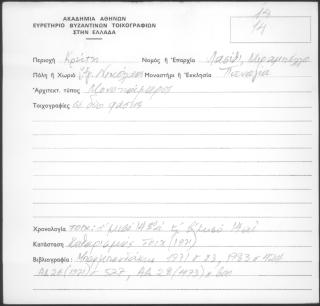 14
14
ΑΚΑΔΗΜΙΑ ΑΘΗΝΩΝ
ΕΥΡΕΤΗΡΙΟ ΒΥΖΑΝΤΙΝΩΝ ΤΟΙΧΟΓΡΑΦΙΩΝ
ΣΤΗΝ ΕΛΛΑΔΑ
Περιοχή Κρήτη Νομός ή Επαρχία Λασίθι, Μεραμπέλλο
Πόλη ή Χωριό Αγ. Νικόλαος Μοναστήρι ή Εκκλησία Παναγία
Αρχιτεκτ. τύπος Μονοκάμαρος
Τοιχογραφίες σε δύο φάσεις
Χρονολογία τοιχ:
Κατάσταση Καθαρισμός τοιχ (1971)
Βιβλιογραφία: 1971 23, 1983
ΑΔ 26 (1971) 527, ΑΔ 28 (1973) 600